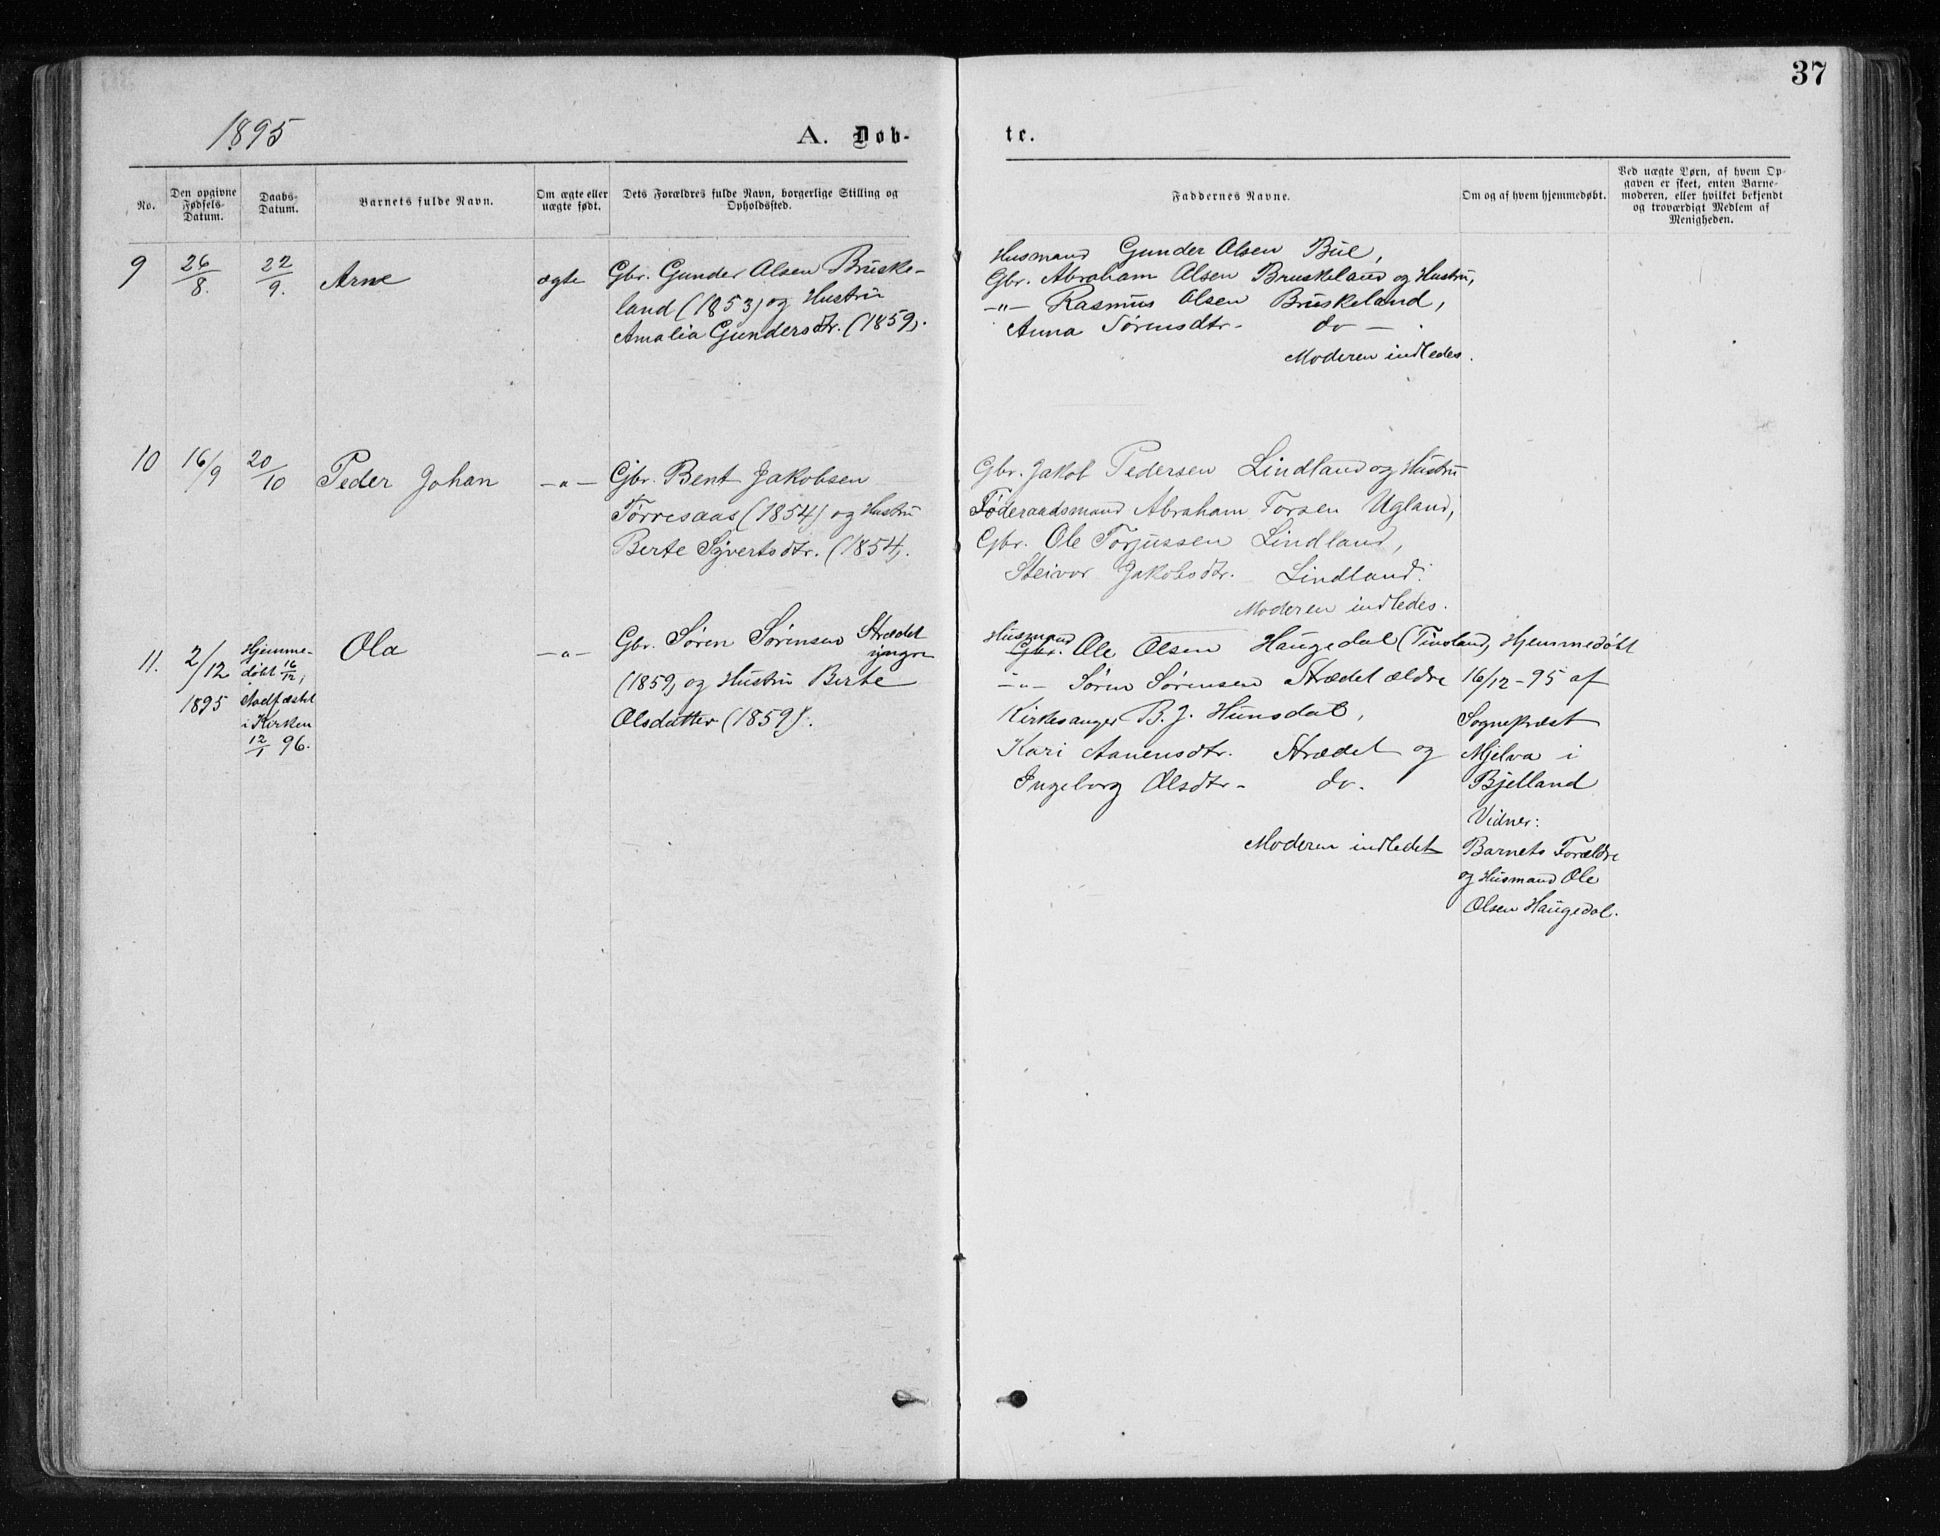 37
1895
A. Døb-
te.
No.
Den opgivne
Fødsels-
Datum.
Daabs-
Datum.
Barnets fulde Navn.
Om ægte eller
uægte født.
Dets Forældres fulde Navn, borgerlige Stilling og
Opholdssted.
Faddernes Navne.
Om og af hvem hjemmedøbt.
Ved uægte Børn, af hvem Op-
gaven er skeet, enten Barne-
moderen, eller hvilket bekjendt
og troværdigt Medlem af
Menigheden.
9
26/8.
22/9.
Arne
ægte
Gbr. Gunder Olsen Bruske-
land (1853) og Hustru
Amalia Gundersdtr. (1859).
Husmand Gunder Olsen Bue,
Gbr. Abraham Olsen Bruskeland og Hustru,
-"- Rasmus Olsen Bruskeland,
Anna Sørensdtr- do -.
Moderen indledes.
10
16/9
20/10
Peder Johan
-"-
Gbr. Bent Jakobsen
Tørresaas (1854) og Hustru
Berte Syvertsdtr. (1854).
Gbr. Jakob Pedersen Lindland og Hustru
Føderaadsmand Abraham Torsen Ugland,
Gbr. Ole Torjussen Lindland,
Steivor Jakobsdtr. Lindland.
Moderen indledes.
11.
2/12
1895
Hjemme-
døbt 16/12,
stadfæstet
i Kirken
12/1 96.
Ola
-"-
Gbr. Søren Sørensen Strædet
yngre
(1859) og Hustru Berte
Olsdatter (1859).
Husmand
Gbr. Ole Olsen Haugedal
-"- Søren Sørensen Strædet ældre
Kirkesanger B. J. Hunsdal,
Kari Aanensdtr. Strædet og
Ingeborg Olsdtr- do.
Moderen indledet
Hjemmedøbt
16/12-95 af
Sognepræst
Mjelva i
Bjelland
Vidner:
Barnets Forældre
og Husmand Ole
Olsen Haugedal.